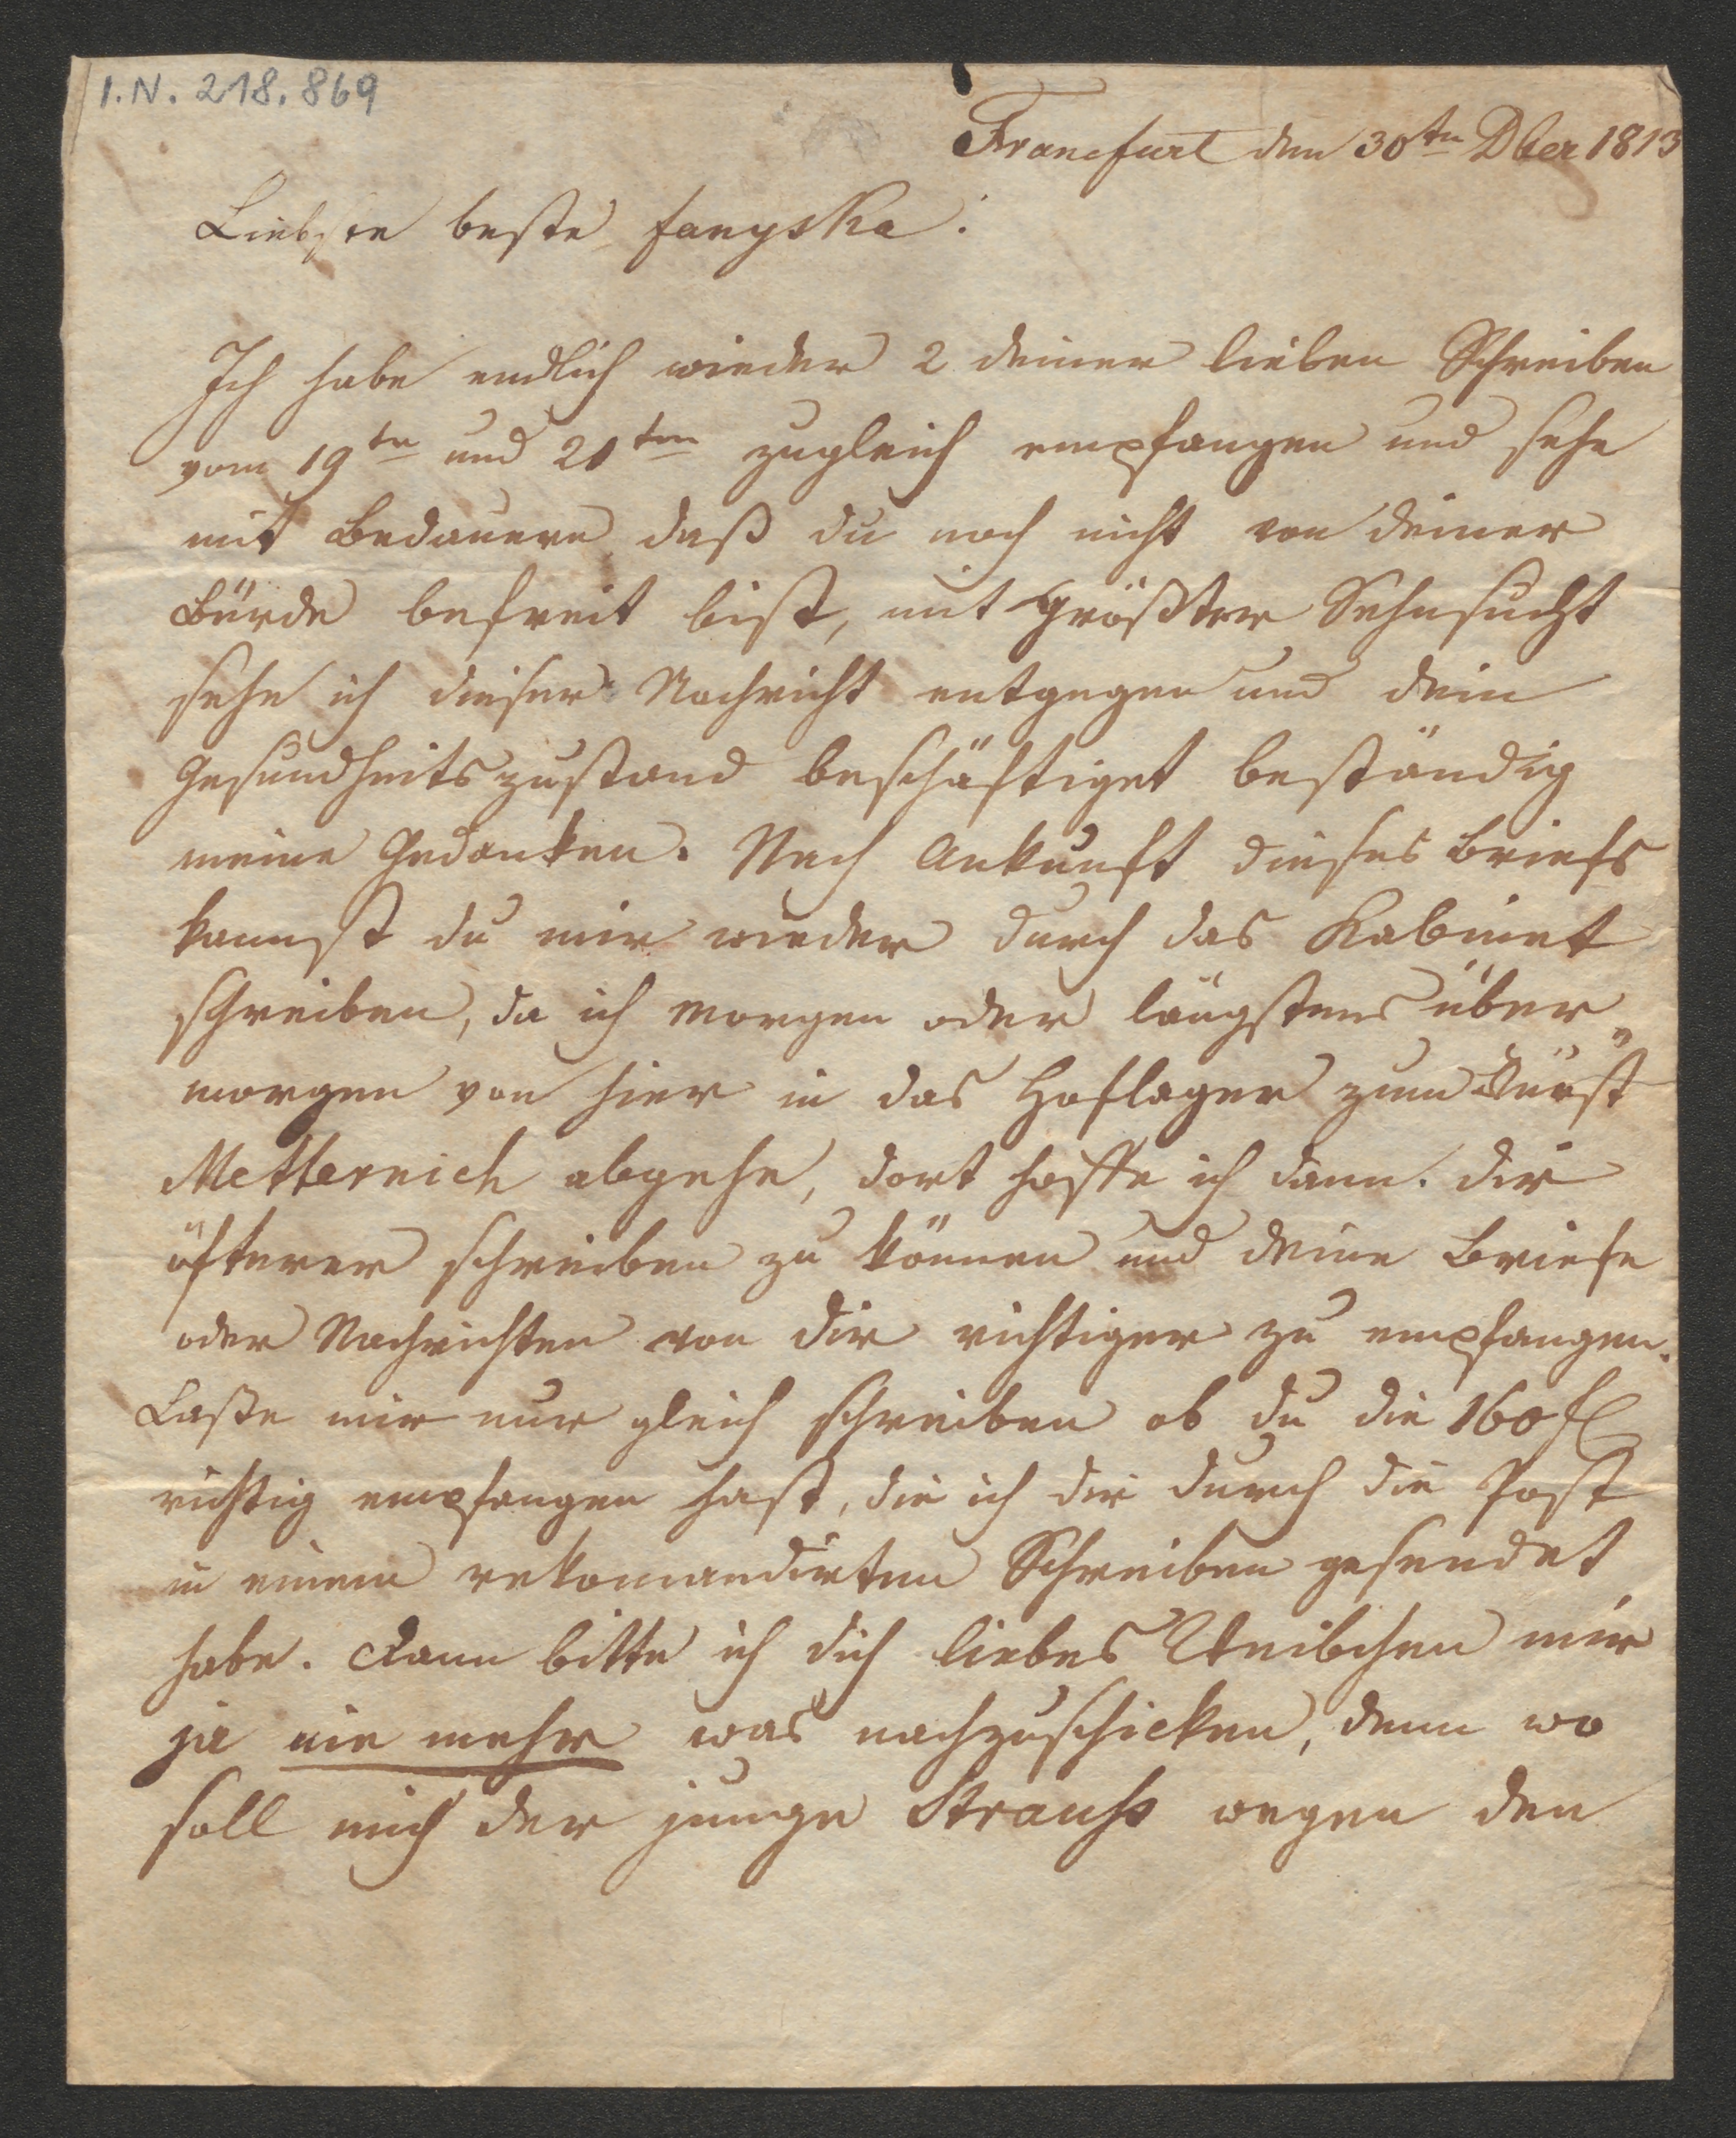 I.N. 218.869
Francfurt den 30ten Dber 1813
Liebste beste fanyska:
Ich habe endlich wieder 2 deiner lieben Schreiben
vom 19ten und 21ten zugleich empfangen und sehe
mit Bedauern daß du noch nicht von deiner
Bürde befreit bist, mit größter Sehnsucht
sehe ich dieser Nachricht entgegen und dein
Gesundheitszustand beschäftiget beständig
meine Gedanken. Nach Ankunft dieses Briefs
kannst du mir wieder durch das Kabinet
schreiben, da ich morgen oder längstens über„
morgen von hier in das Hoflager zum Fürst
Metternich abgehe, dort hoffe ich dann. dir
öfterer schreiben zu können und deine Briefe
oder Nachrichten von dir richtiger zu empfangen.
Laße mir nur gleich schreiben ob du die 160 fl
richtig empfangen hast, die ich dir durch die Post
in einem rekomandirten Schreiben gesendet
habe. Dann bitte ich dich liebes Weibchen mir
ja nie mehr was nachzuschicken, denn wo
soll mich der junge Strauss wegen den